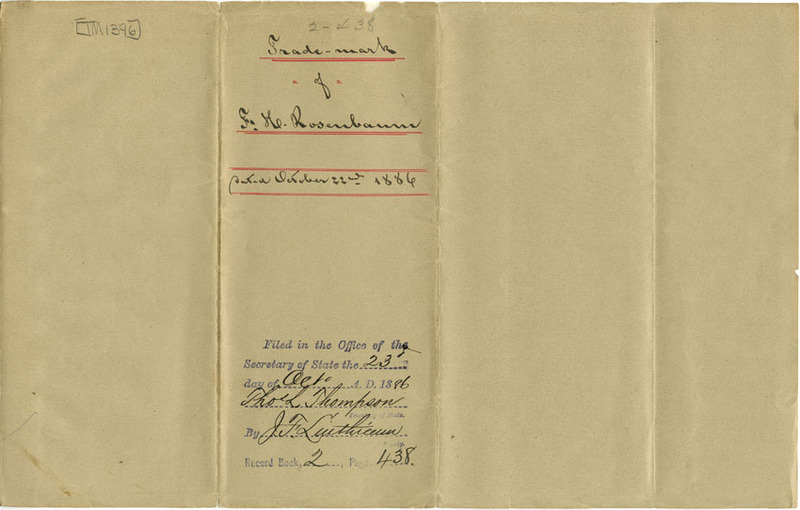 [TM1396]
2-438
Trade-mark
" of "
F. H. Rosenbaum
Dated October 22nd 1886
Filed in the Office of the
Secretary of State the 23d
day of Octo A. D. 1886
Thos L. Thompson
Secretary of State.
By J. F. Linthicum
Deputy.
Record Book, 2, Page, 438.